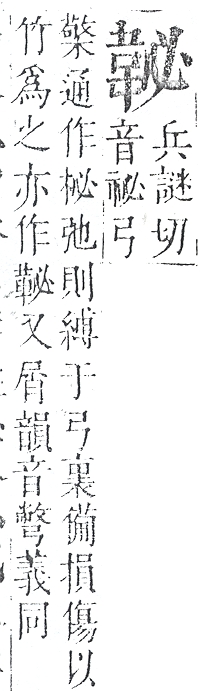 兵謎切
音祕弓
檠通作柲弛則縛于弓裏備損傷以
竹爲之亦作䩛又屑韻音彆義同